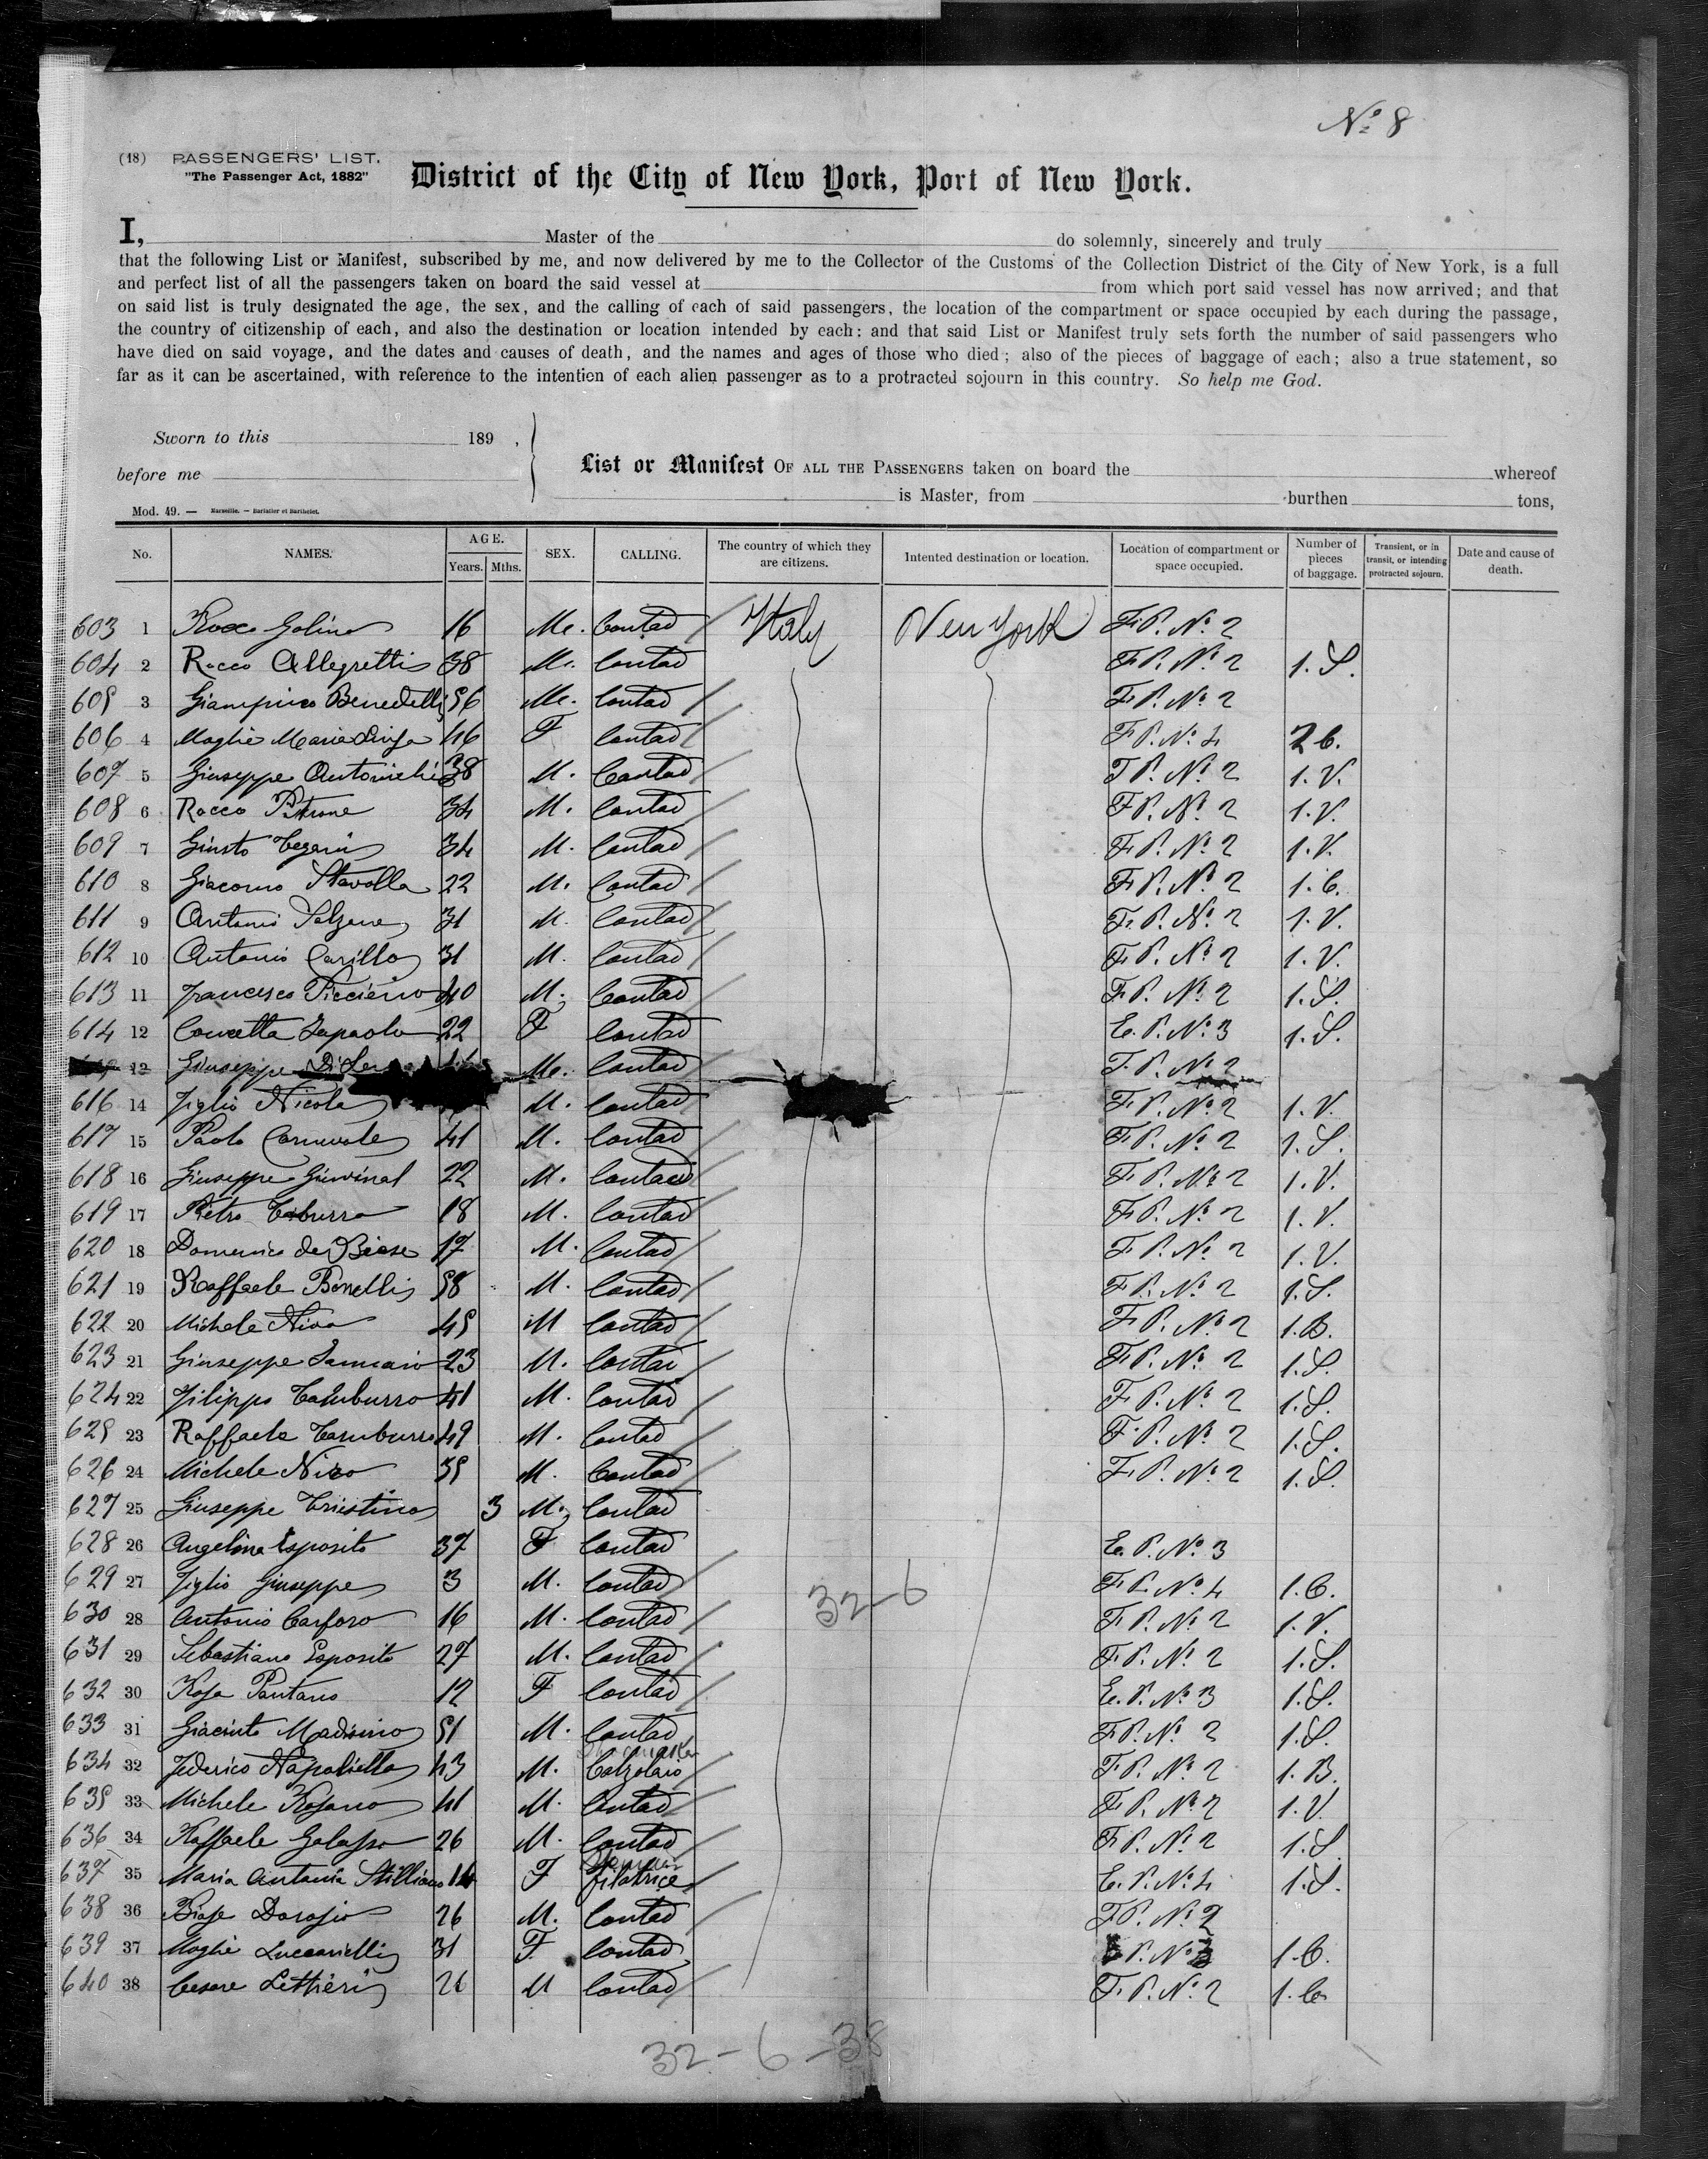 Nº 8
(18) PASSENGERS' LIST.
"The Passenger Act, 1882"
District of the City of New York, Port of New York.
I, Master of the do solemnly, sincerely and truly
that the following List or Manifest, subscribed by me, and now delivered by me to the Collector of the Customs of the Collection District of the City of New York, is a full
and perfect list of all the passengers taken on board the said vessel at from which port said vessel has now arrived; and that
on said list is truly designated the age, the sex, and the calling of each of said passengers, the location of the compartment or space occupied by each during the passage,
the country of citizenship of each, and also the destination or location intended by each: and that said List or Manifest truly sets forth the number of said passengers who
have died on said voyage, and the dates and causes of death, and the names and ages of those who died; also of the pieces of baggage of each; also a true statement, so
far as it can be ascertained, with reference to the intention of each alien passenger as to a protracted sojourn in this country. So help me God.
Sworn to this 189 ,
before me
List or Manifest OF ALL THE PASSENGERS taken on board the whereof
is Master, from burthen tons,
Mod. 49. — Marseille. — Barlatier et Barthelet.
No. NAMES. AGE. Years. Mths. SEX. CALLING. The country of which they are citizens. Intented destination or location. Location of compartment or space occupied. Number of pieces of baggage. Transient, or in transit, or intending protracted sojourn. Date and cause of death.
603 1 Rocco Golino 16 M. Contad Italy New York F. P. Nº 2
604 2 Rocco Allegretti 38 M. Contad F. P. Nº 2 1. S.
605 3 Benedetti 56 M. Contad F. P. Nº 2
606 4 Moglie Maria Luisa 46 F Contad F P. Nº 4 2 C.
607 5 Giuseppe 38 M. Contad F P. Nº 2 1. V.
608 6 Rocco Petrone 34 M. Contad F P. Nº 2 1. V.
609 7 Giusto 34 M. Contad F P. Nº 2 1. V.
610 8 Giacomo Stavolla 22 M. Contad F P. Nº 2 1. C.
611 9 Antonio 31 M. Contad F. P. Nº 2 1. V.
612 10 Antonio Carillo 31 M. Contad F. P. Nº 2 1. V.
613 11 Francesco 40 M. Contad F P. Nº 2 1. S.
614 12 Concetta 22 F Contad E. P. Nº 3 1. S.
13 Giuseppe M. Contad F. P. Nº 2
616 14 Figlio Nicola M. Contad F. P. Nº 2 1. V.
617 15 Paolo Carnevale 41 M. Contad F P. Nº 2 1. S.
618 16 Giuseppe 22 M. Contad F P. Nº 2 1. V.
619 17 Pietro 18 M. Contad F P. Nº 2 1. V.
620 18 Domenico de Biase 17 M. Contad F P. Nº 2 1. V.
621 19 Raffaele Bonelli 58 M. Contad F P. Nº 2 1. S.
622 20 Michele 45 M Contad F P. Nº 2 1. B.
623 21 Giuseppe 23 M. Contad F P. Nº 2 1. S.
624 22 Filippo Tamburro 41 M. Contad F P. Nº 2 1. S.
625 23 Raffaele Tamburro 49 M. Contad F. P. Nº 2 1. S.
626 24 Michele 35 M. Contad F P. Nº 2 1. S.
627 25 Giuseppe Cristino 3 M. Contad
628 26 Angelina Esposito 37 F Contad E. P. Nº 3
629 27 Figlio Giuseppe 3 M. Contad F P. Nº 4 1. C.
630 28 Antonio Carforo 16 M. Contad F P. Nº 2 1. V.
631 29 Sebastiano Esposito 27 M. Contad F P. Nº 2 1. S.
632 30 Rosa Pantano 12 F Contad E. P. Nº 3 1. S.
633 31 Giacinto 51 M. Contad F P. Nº 2 1. S.
634 32 Federico Napoliello 43 M. Shoemaker Calzolaio F P. Nº 2 1. B.
635 33 Michele Rosano 41 M. Contad F P. Nº 2 1. V.
636 34 Raffaele Galasso 26 M. Contad F P. Nº 2 1. S.
637 35 Maria Antonia 14 F filatrice E. P. Nº 4 1. S.
638 36 Biase 26 M. Contad F P. Nº 2
639 37 Moglie Luccarielli 31 F. Contad P. Nº 3 1. C.
640 38 Cesare Lettieri 26 M Contad F. P. Nº 2 1. C.
32-6
32-6-38